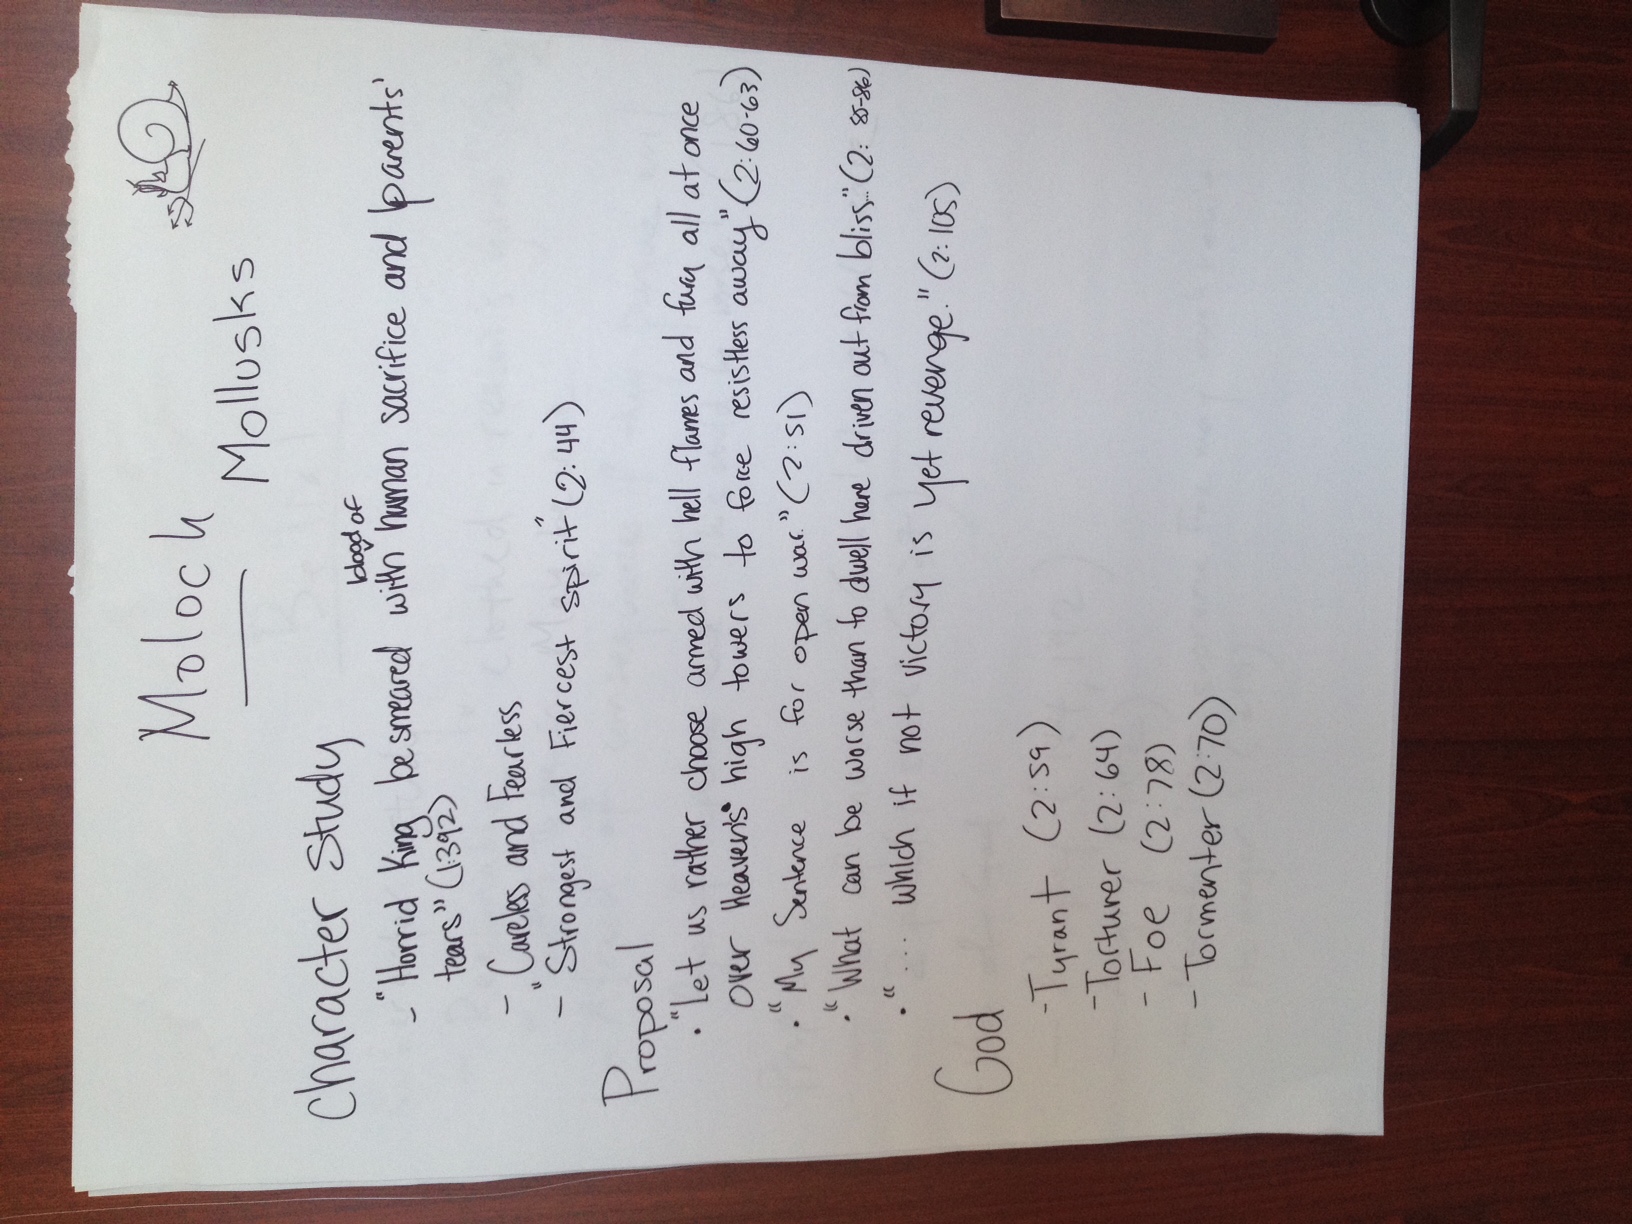 Moloch
Mollusks
Character Study
blood of
- "Horrid King besmeared with human sacrifice and parents'
tears" (1:392)
- Careless and Fearless
- "Strongest and Fiercest spirit" (2:44)
Proposal
• "Let us rather choose armed with hell flames and fury all at once
over Heaven's high towers to force resistless away" (2:60-63)
• "My Sentence is for open war." (2:51)
• "What can be worse than to dwell here driven out from bliss..." (2: 85-86)
• "... which if not victory is yet revenge." (2:105)
God
- Tyrant (2:59)
- Torturer (2:64)
- Foe (2:78)
- Tormenter (2:70)